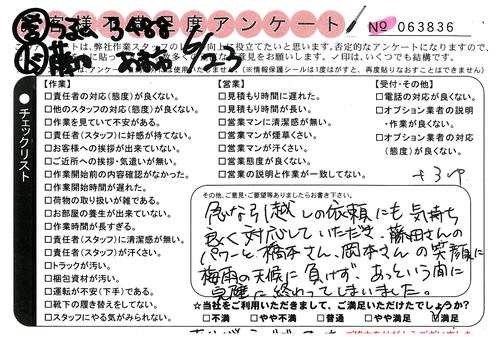 お客様不満足度アンケート
No 063836
ートは、弊社作業スタッフの
向上に役立てたいと思います。否定的なアンケートになりますので、
意見をお願いします。✓印は、いくつでも結構です。
アンケート
使用はいたしません。(※情報保護シールは1度がすと、再度貼りなおすことはできません)
チェックリスト
【作業】
□責任者の対応(態度)が良くない。
□他のスタッフの対応(態度)が良くない。
□作業を見ていて不安がある。
□責任者(スタッフ)に好感が持てない。
□お客様への挨拶が出来ていない。
□ご近所への挨拶・気遣いが無い。
□作業開始前の内容確認がなかった。
□作業開始時間が遅れた。
□荷物の取り扱いが雑である。
□お部屋の養生が出来ていない。
□作業時間が長すぎる。
□責任者(スタッフ)に清潔感が無い。
□責任者(スタッフ)が汗くさい。
□トラックが汚い。
□梱包資材が汚い。
□運転が不安(下手)である。
□靴下の履き替えをしてない。
□スタッフにやる気がみられない。
【営業】
□見積もり時間に遅れた。
□見積もり時間が長い。
□営業マンに清潔感が無い。
□営業マンが煙草くさい。
□営業マンが汗くさい。
□営業態度が良くない。
□営業の説明と作業が一致してない。
【受付・その他】
□電話の対応が良くない。
□オプション業者の説明
・作業が良くない。
□オプション業者の対応
(態度)が良くない。
その他、ご意見・ご要望等ありましたらお書き下さい。
急な引越しの依頼にも気持ち
良く対応していただき、藤田さんの
パワーと橋本さん、岡本さんの笑顔に
梅雨の天候に負けず、あっという間に
完璧に終わってしまいました。
☆当社をご利用いただきまして、ご満足いただけたでしょうか?
□不満 □やや不満 □普通 □やや満足 ☑満足